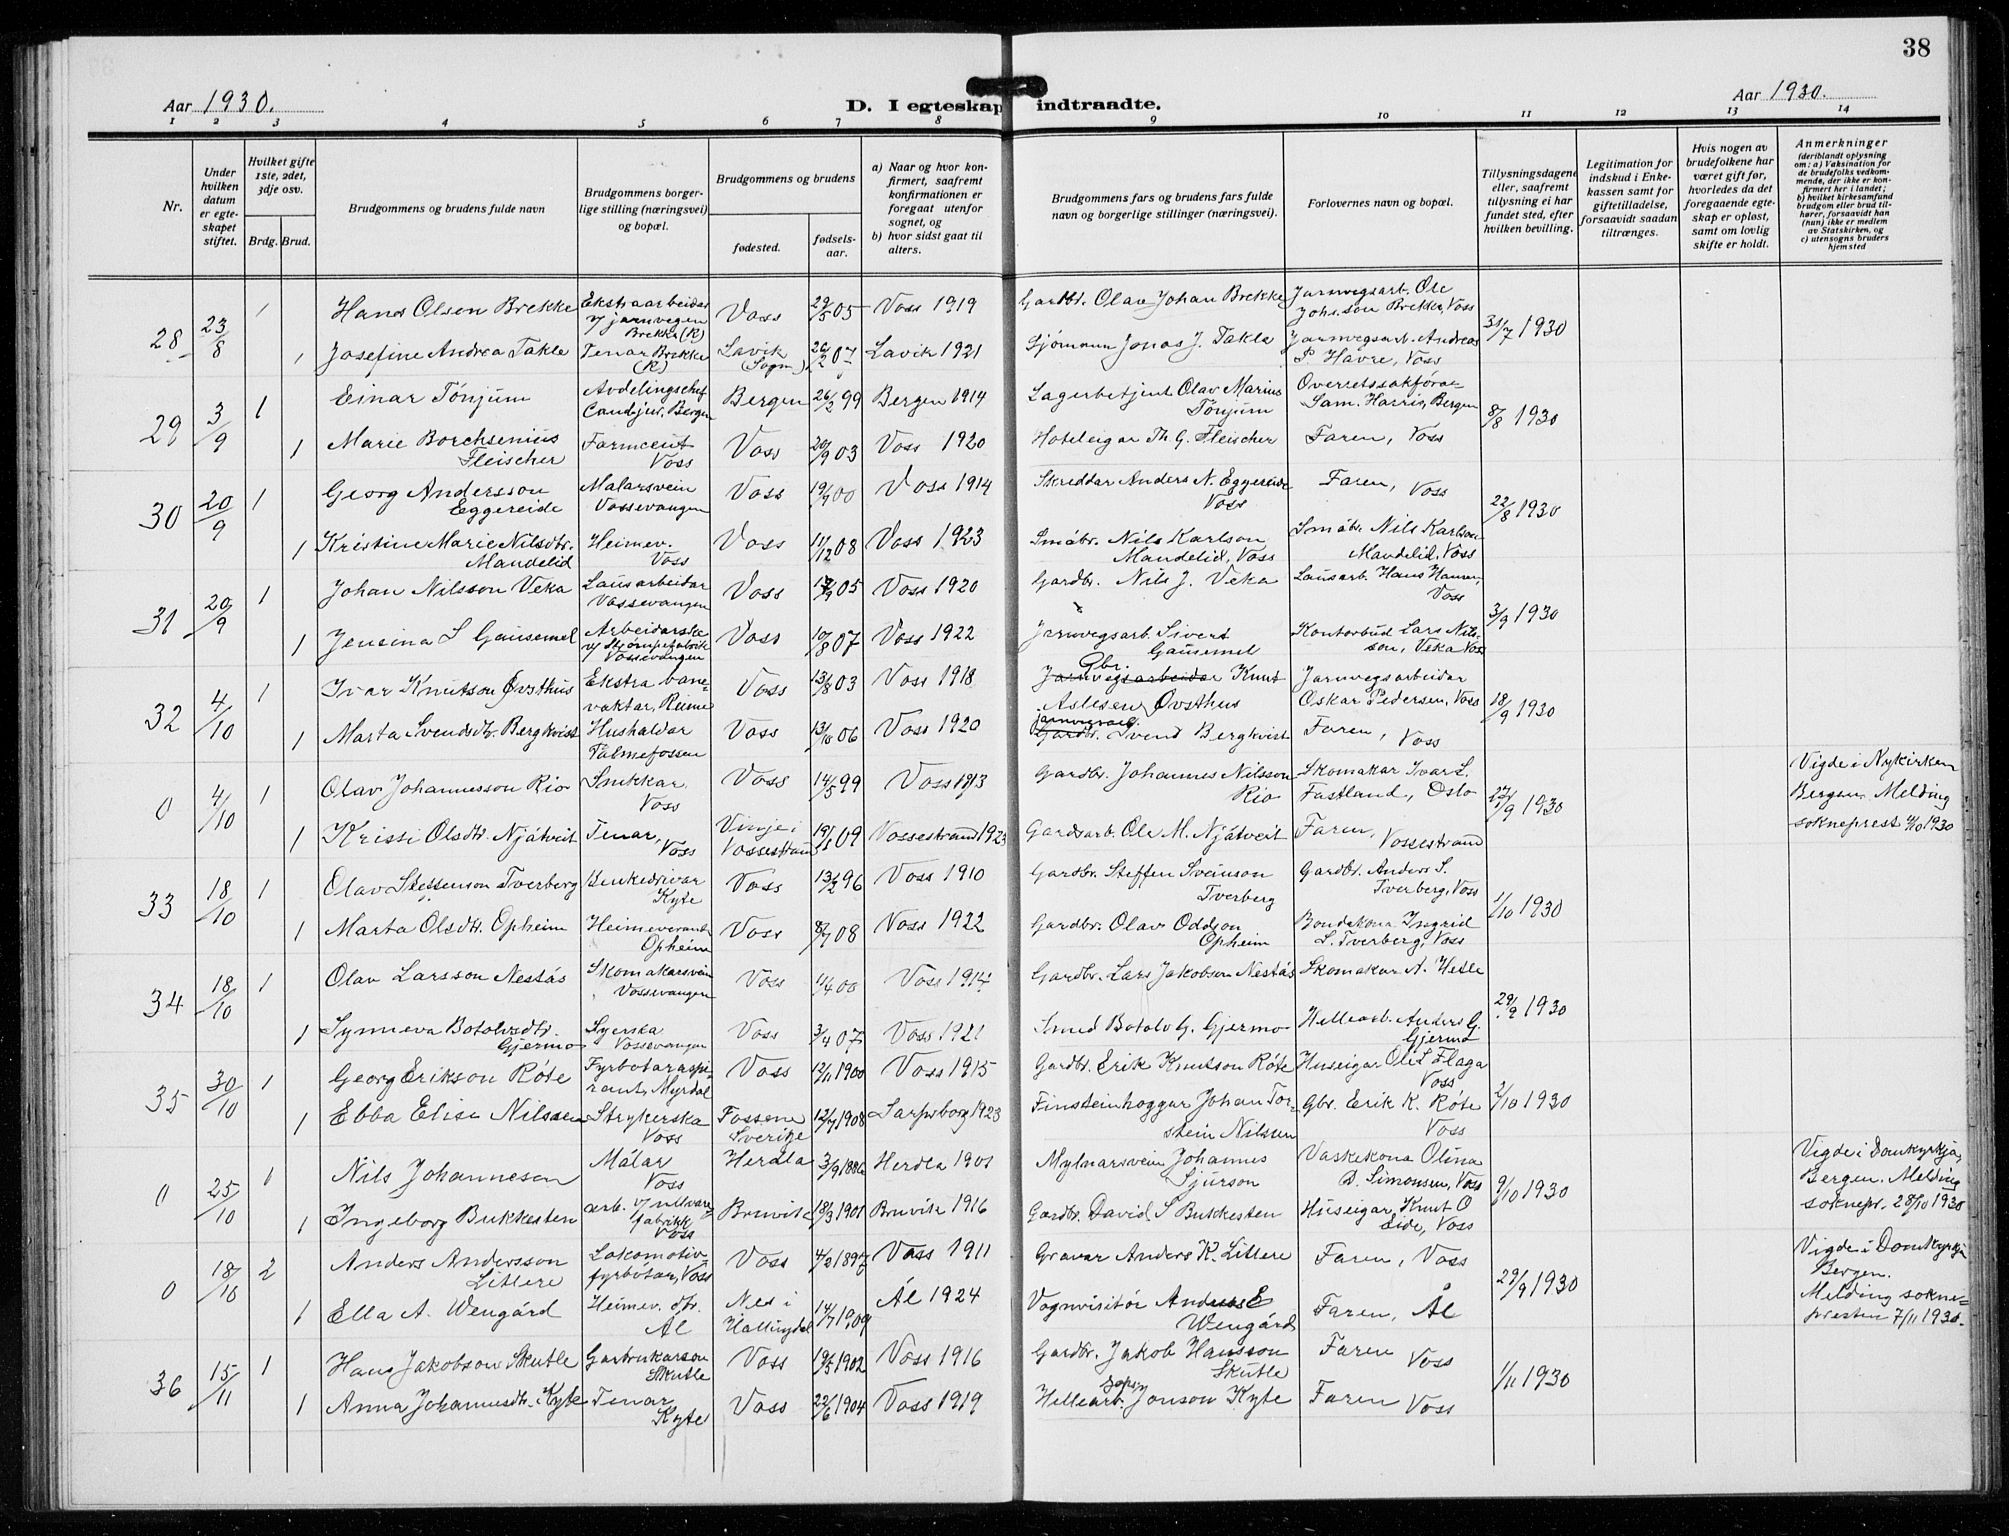 38
Aar 1930.
D. I egteskap indtraadte.
Aar 1930.
1 2 3 4 5 6 7 8 9 10 11 12 13 14
Nr.
Under hvilken datum er egteskapet stiftet.
Hvilket gifte 1ste, 2det, 3dje osv.
Brdg. Brud.
Brudgommens og brudens fulde navn
Brudgommens borgerlige stilling (næringsvei) og bopæl.
Brudgommens og brudens
fødested.
fødselsaar.
a) Naar og hvor konfirmert, saafremt konfirmationen er foregaat utenfor sognet, og
b) hvor sidst gaat til alters.
Brudgommens fars og brudens fars fulde navn og borgerlige stillinger (næringsvei).
Forlovernes navn og bopæl.
Tillysningsdagene eller, saafremt tillysning ei har fundet sted, efter hvilken bevilling.
Legitimation for indskud i Enkekassen samt for giftetilladelse, forsaavidt saadan tiltrænges.
Hvis nogen av brudefolkene har været gift før, hvorledes da det foregaaende egteskap er opløst, samt om lovlig skifte er holdt.
Anmerkninger
(deriblandt oplysning om: a) Vaksination for de brudefolks vedkommende, der ikke er konfirmert her i landet; b) hvilket kirkesamfund brudgom eller brud tilhører, forsaavidt han (hun) ikke er medlem av Statskirken, og c) utensogns bruders hjemsted
28 23/8 1 Hans Olsen Brekke Ekstraarbeidar v/ jarnvegen Brekke (R) Voss 29/5 05 Voss 1919 Gardbr. Olav Johan Brekke Jarnvegsarb. Ole Johs.son Brekke, Voss 31/7 1930
1 Josefine Andrea Takle Tenar Brekke (R) Lavik (Sogn) 26/2 07 Lavik 1921 Sjømann Jonas J. Takle Jarnvegsarb. Andreas P. Havre, Voss
29 3/9 1 Einar Tönjum Avdelingschef Cand.jur. Bergen Bergen 26/2 99 Bergen 1914 Lagerbetjent Olav Marius Tönjum Overretssakförar Sam. Harris, Bergen 8/8 1930
1 Marie Borchsenius Fleischer Farmceut Voss Voss 20/9 03 Voss 1920 Hoteleigar Th. G. Fleischer Faren, Voss
30 20/9 1 Georg Andersson Eggereide Malarsvein Vossevangen Voss 19/9 00 Voss 1914 Skreddar Anders N. Eggereide Voss Faren, Voss 22/8 1930
1 Kristine Marie Nilsdtr. Mandelid Heimev. Voss Voss 11/12 08 Voss 1923 Småbr. Nils Karlson Mandelid, Voss Småbr. Nils Karlson Mandelid, Voss
31 20/9 1 Johan Nilsson Veka Lausarbeidar Vossevangen Voss 05 Voss 1920 Gardbr. Nils J. Veka Lausarb. Hans Hansen, Voss 3/9 1930
1 Jensina S Gausemel Arbeidarske v/ Strømpefabrik Vossevangen Voss 10/8 07 Voss 1922 Jarnvegsarb. Sivert Gausemel Kontorbud Lars Nilsson, Veka Voss
32 4/10 1 Ivar Knutson Øvsthus Ekstra banevaktar, Reime Voss 13/8 03 Voss 1918 Gbr. Jarnvegsarbeidar Knut Aslesen Øvsthus Jarnvegsarbeidar Oskar Pedersen, Voss 18/9 1930
1 Marta Svendsdtr. Bergkvist Hushaldar Palmefossen Voss 13/10 06 Voss 1920 Gardbr. Svend Bergkvist Faren, Voss
0 4/10 1 Olav Johannesson Rio Snikkar, Voss Voss 14/5 99 Voss 1913 Gardbr. Johannes Nilsson Rio Skomakar Ivar L. Fastland, Oslo 27/9 1930 Vigde i Nykirken Bergen. Melding sokneprest 4/10 1930
1 Kristi Olsdtr. Njåtveit Tenar, Voss Vinje i Vossestrand 19/1 09 Vossestrand 1923 Gardsarb. Ole M. Njåtveit Faren, Vossestrand
33 18/10 1 Olav Steffenson Tverberg Benkedrivar Kyte Voss 13/2 96 Voss 1910 Gardbr. Steffen Sveinson Tverberg Gardbr. Anders S. Tverberg, Voss 1/10 1930
1 Marta Olsdtr. Opheim Heimeverant Opheim Voss 8/7 08 Voss 1922 Gardbr. Olav Oddson Opheim Bondakona Ingrid S. Tverberg, Voss
34 18/10 1 Olav Larsson Nestås Skomakarsvein Vossevangen Voss 11/4 00 Voss 1914 Gardbr. Lars Jakobson Nestås Skomakar A. Helle 29/9 1930
1 Synneva Botolvsdtr. Gjermo Syerska Vossevangen Voss 3/4 07 Voss 1921 Smed Botolv G. Gjermo Hellearb. Anders G. Gjermo
35 30/10 1 Georg Erikson Röte Fyrbötaraspirant, Myrdal Voss 12/11 1900 Voss 1915 Gardbr. Erik Knutson Röte Huseigar Ole L Flaga Voss 2/10 1930
1 Ebba Elise Nilssen Strykerska Voss Fossene Sverige 12/7 1908 Sarpsborg 1923 Finsteinhoggar Johan Torstein Nilssen Gbr. Erik K. Röte Voss
0 25/10 1 Nils Johannesen Målar Voss Herdla 3/9 1886 Herdla 1901 Mylnarsvein Johannes Sjurson Vaskekona Olina D. Simonsen, Voss 9/10 1930 Vigde i Domkyrkja, Bergen. Melding soknepr. 28/10 1930
1 Ingeborg Bukkesten arb. v/ ullvarefabrikk Voss Bruvik 18/3 1901 Bruvik 1916 Gardbr. David S Bukkesten Huseigar Knut O Lide, Voss
0 18/10 2 Anders Andersson Littere Lokomotivfyrbötar, Voss Voss 4/2 1897 Voss 1911 Gravar Anders K. Littere Faren, Voss 29/9 1930 Vigde i Domkyrkja Bergen. Melding soknepresten 7/11 1930.
1 Ella A. Wengård Heimev. dtr. Ål Nes i Hallingdal 14/7 1909 Ål 1924 Vognvisitör Anders E Wengård Faren, Ål
36 15/11 1 Hans Jakobson Skutle Garbrukarson Skutle Voss 19/5 1902 Voss 1916 Gardbr. Jakob Hansson Skutle Faren Voss 1/11 1930
1 Anna Johannesdtr. Kyte Tenar Kyte Voss 22/6 1904 Voss 1919 Hellearb. Jonson Kyte Faren Voss